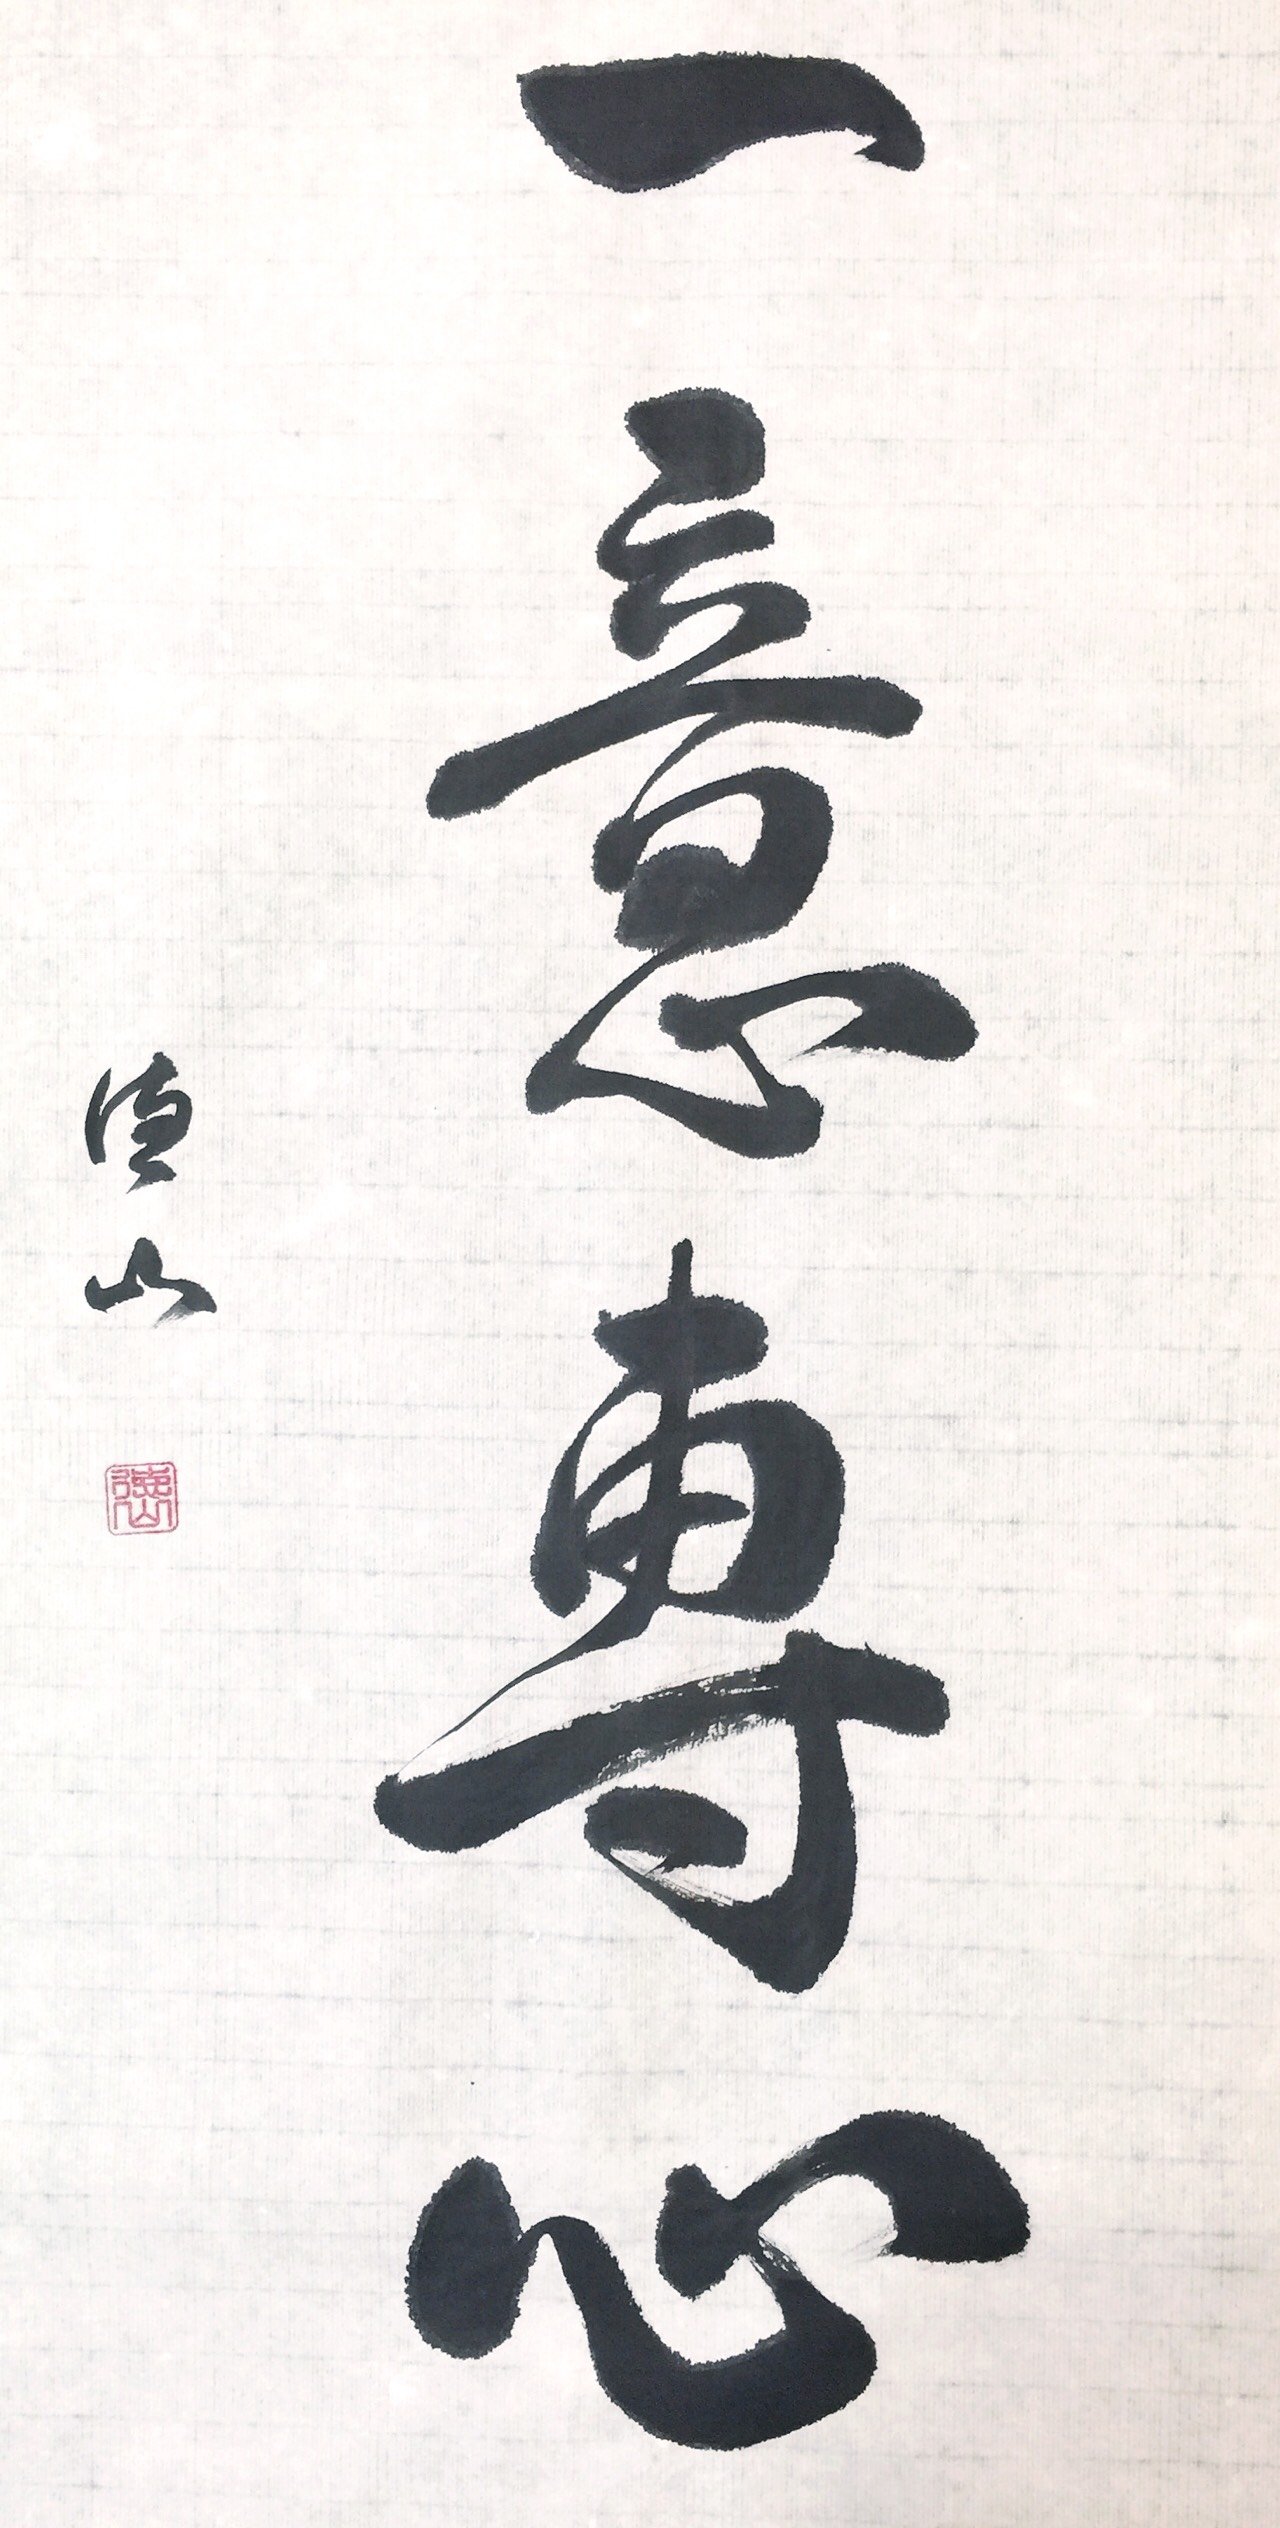 一意専心
徳山